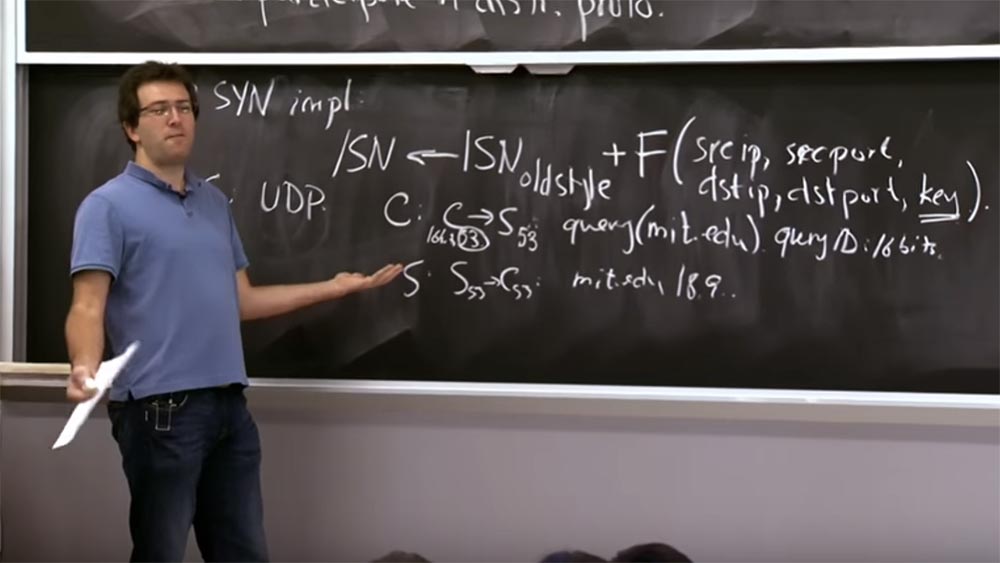 participate in distr. proto.
SYN impl:
ISN ← ISN oldstyle + F(src ip, src port,
dst ip, dst port, key).
: UDP.
C: C→S53: query(mit.edu). query ID: 16 bits.
S: S53→C53: mit.edu, 18.9..